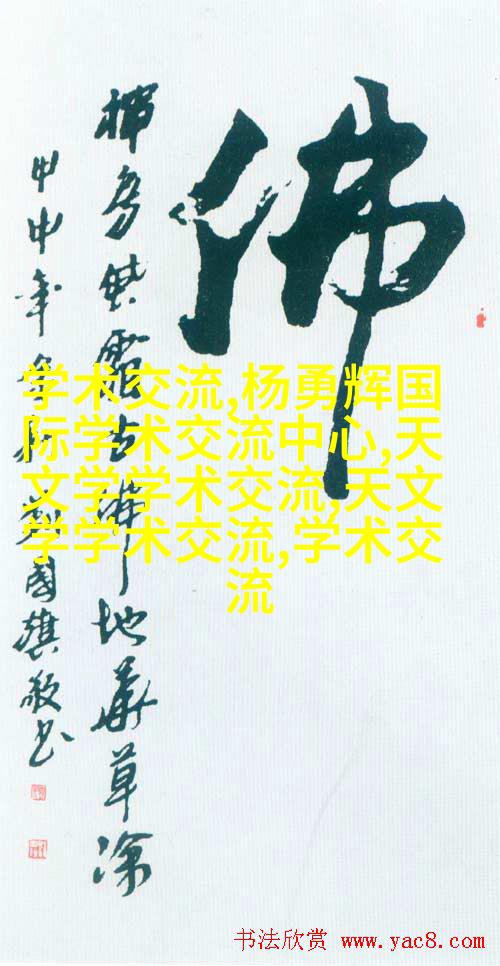 佛
古佛地華草深
甲申年
國旗敬书
学术交流,杨勇辉国
际学术交流中心,天
文学学术交流,天文
学学术交流,学术交
流
书法欣赏 www.yac8.com